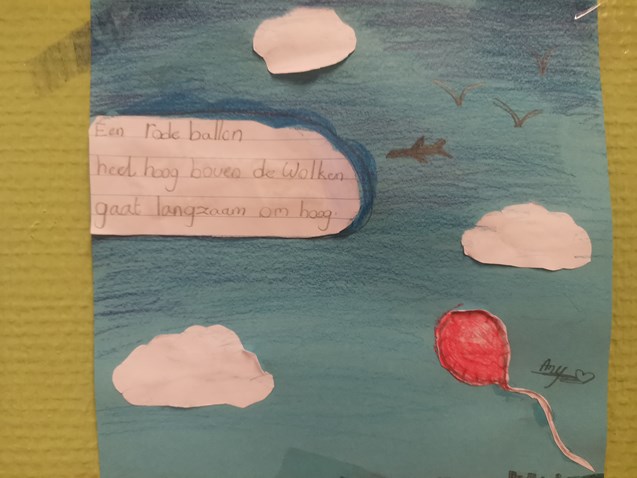 Een rode ballon
heel hoog boven de Wolken
gaat langzaam om hoog.
Any